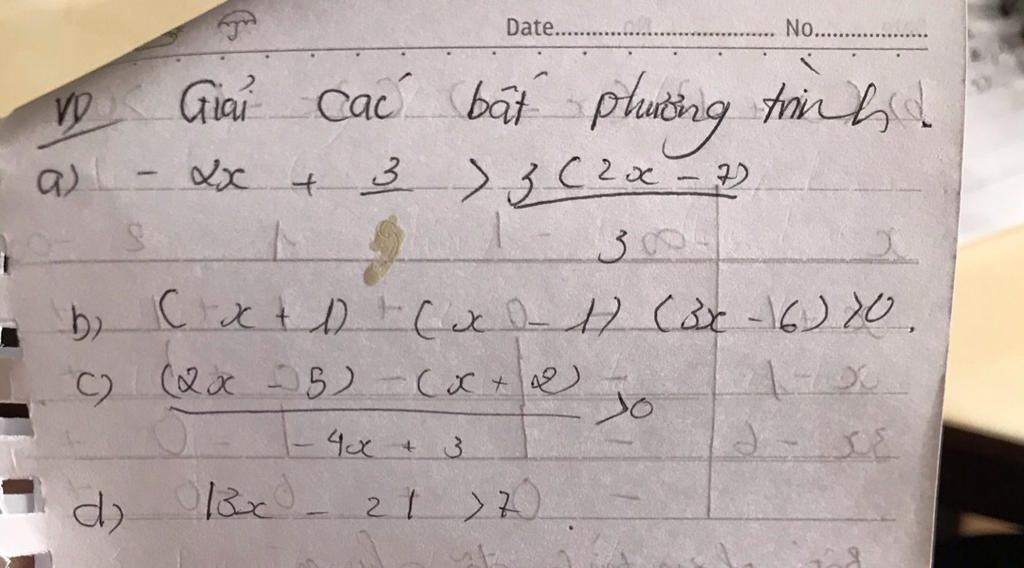 Date.................... No....................
VD Giải các bất phương trình.
a) - 2x + 3 > 3(2x - 7)
3
b) (x + 1) (x - 1) (3x - 6) > 0.
c) (2x - 5) (x + 2) > 0
- 4x + 3
d) |3x - 2| > 7